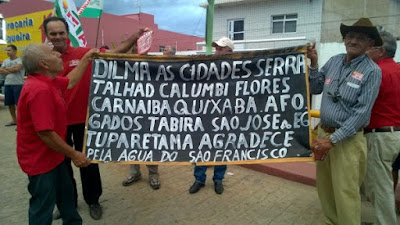 DILMA AS CIDADES SERRA
TALHAD CALUMBI FLORES
CARNAIBA QUIXABA. AFO.
GADOS TABIRA SAO JOSE do EG
TUPARETAMA AGRADECE
PELA AGUA DO SAO FRANCISCO